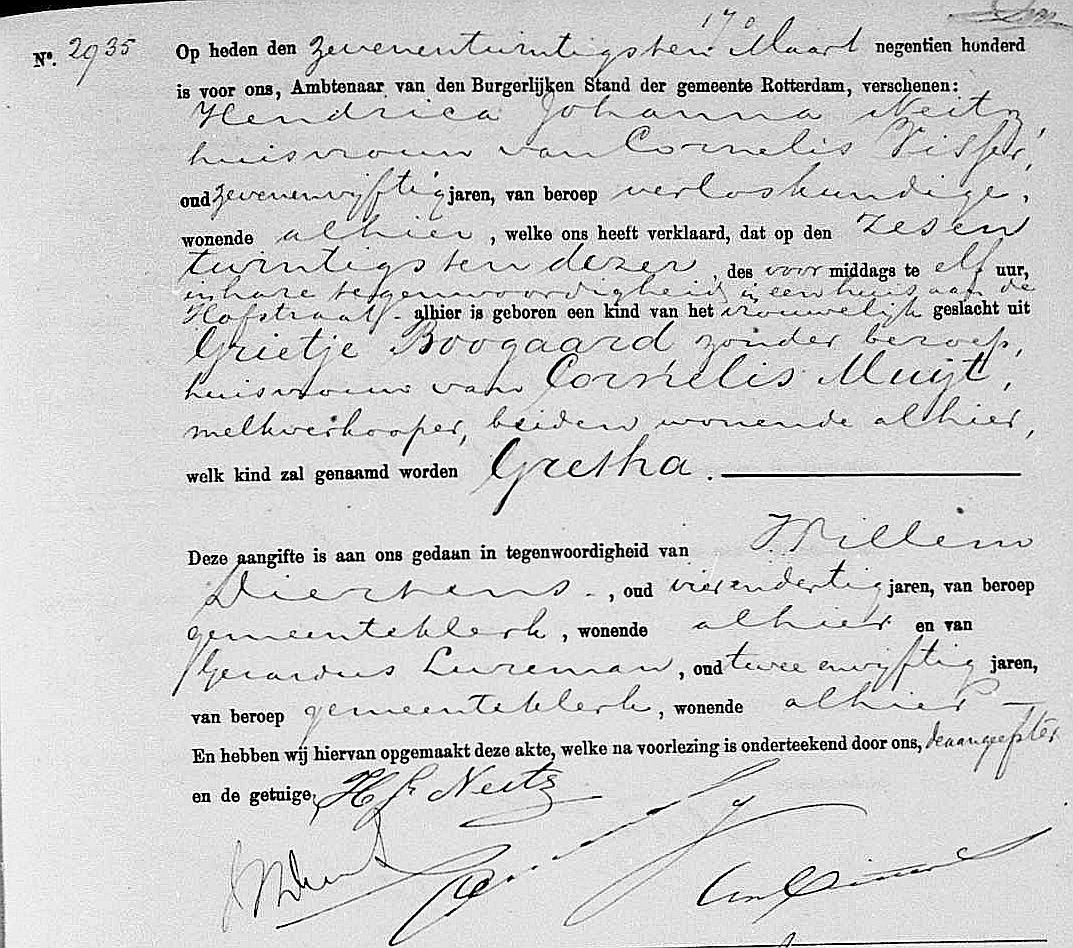 Nº. 2935 Op heden den zevenentwintigsten Maart negentien honderd
is voor ons, Ambtenaar van den Burgerlijken Stand der gemeente Rotterdam, verschenen:
Hendrica Johanna Neitz,
huisvrouw van Cornelis Visser,
oud zevenenvijftig jaren, van beroep verloskundige,
wonende alhier, welke ons heeft verklaard, dat op den zesen
twintigsten dezer, des voor middags te elf uur,
in hare tegenwoordigheid in een huis aan de
Hofstraat - alhier is geboren een kind van het vrouwelijk geslacht uit
Grietje Boogaard zonder beroep,
huisvrouw van Cornelis Muijt,
melkverkooper, beiden wonende alhier,
welk kind zal genaamd worden Gretha.
Deze aangifte is aan ons gedaan in tegenwoordigheid van Willem
Dierkens -, oud vierendertig jaren, van beroep
gemeenteklerk, wonende alhier en van
Gerardus Lureman, oud twee envijftig jaren,
van beroep gemeenteklerk, wonende alhier —
En hebben wij hiervan opgemaakt deze akte, welke na voorlezing is onderteekend door ons, de aangeefster
en de getuige, H J Neitz